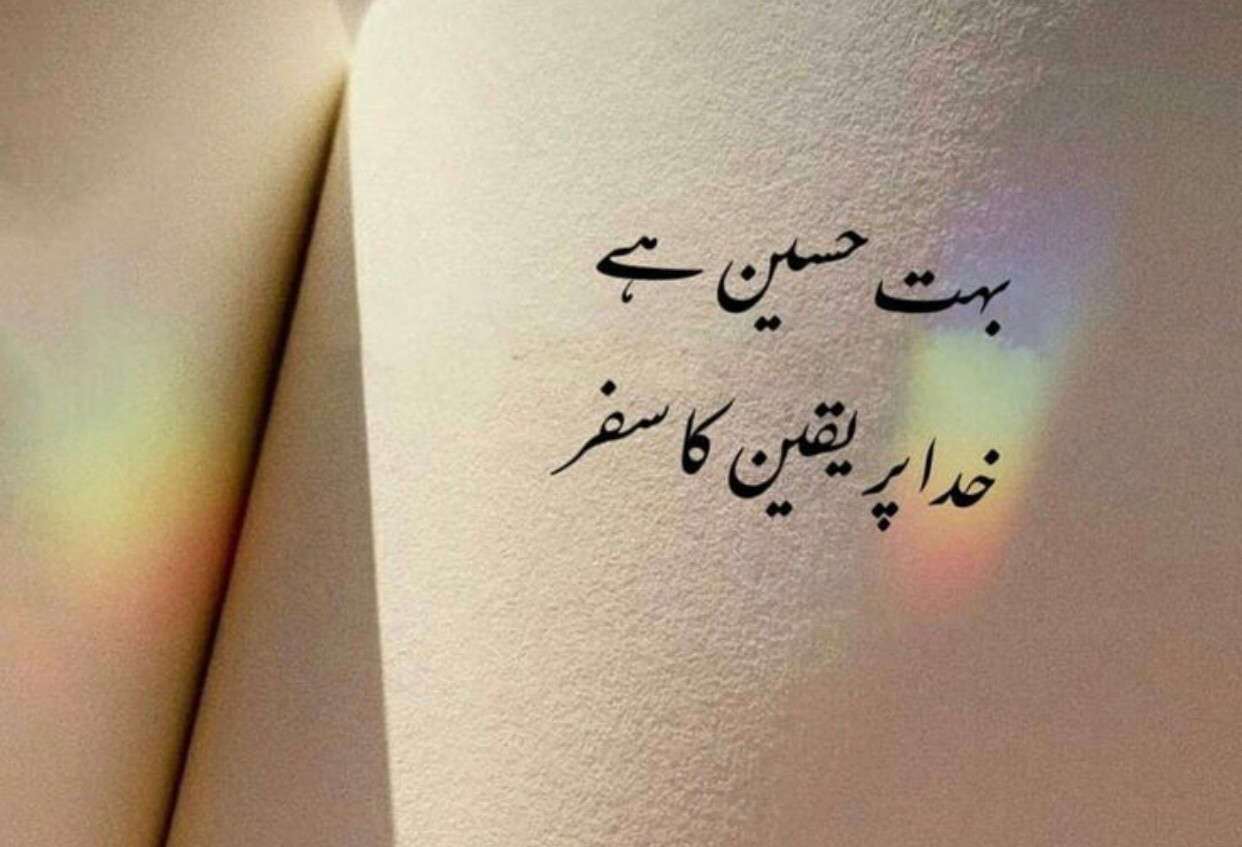 بہت حسین ہے
خدا پر یقین کا سفر